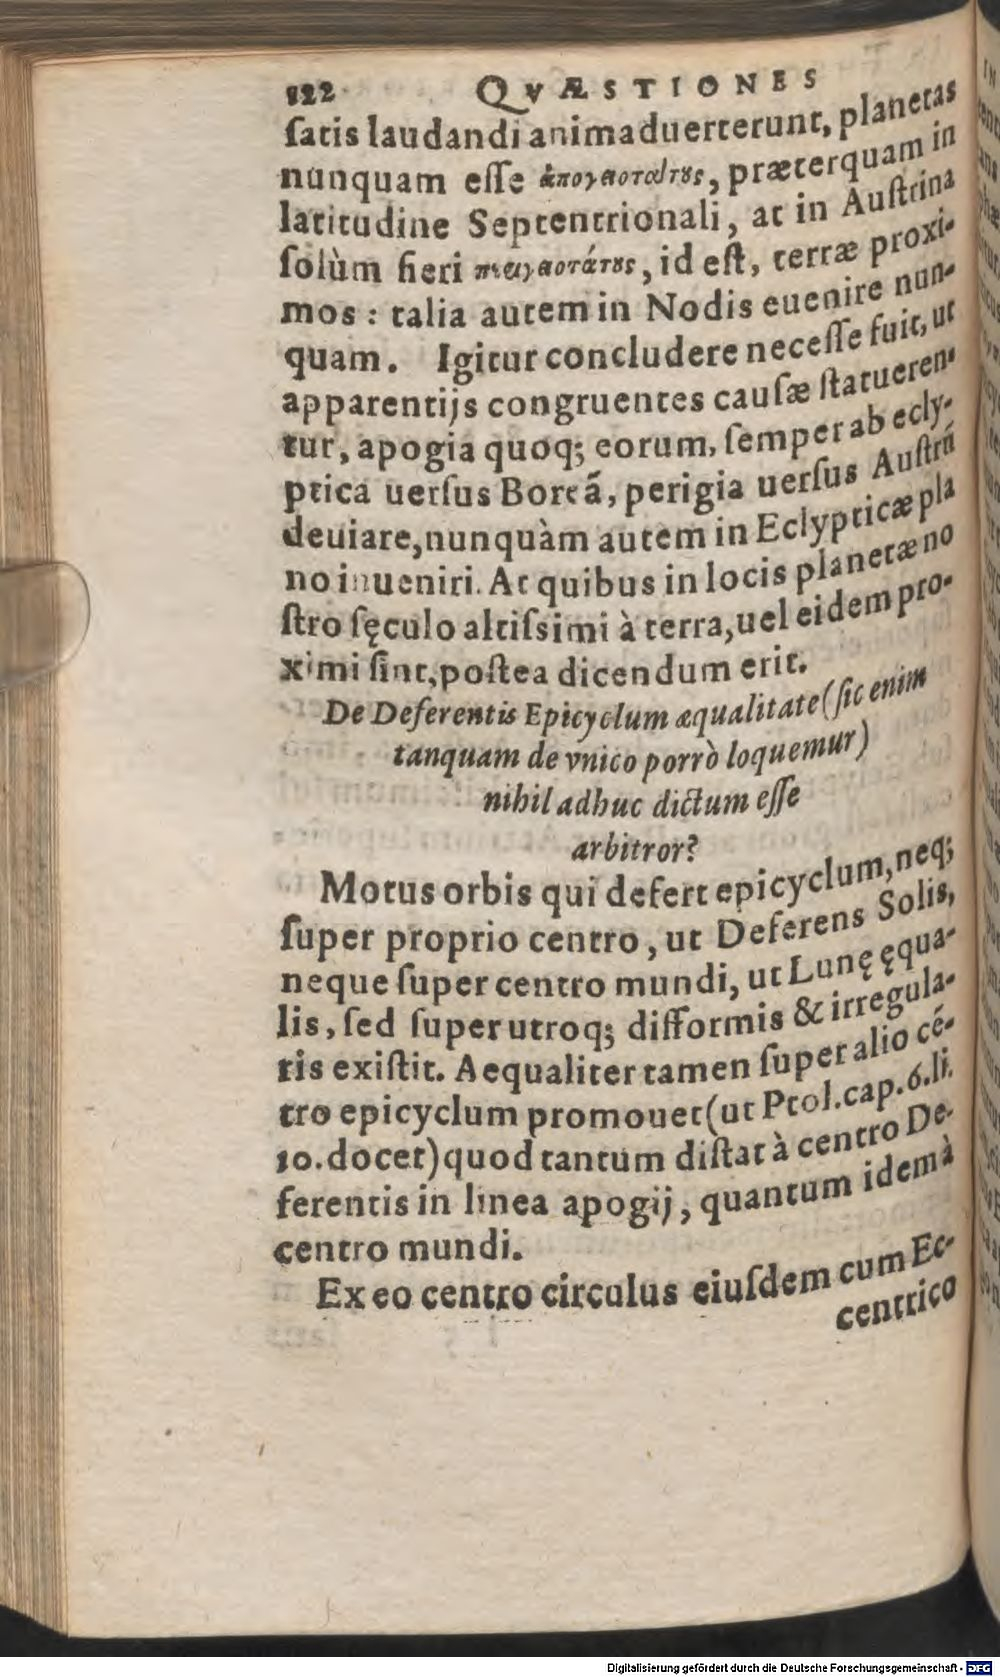 122 QVÆSTIONES
ſatis laudandi animaduerterunt, planetas
nunquam eſſe ἀπογαοτάτȣς, præterquam in
latitudine Septentrionali, at in Auſtrina
ſolùm fieri περιγαοτάτȣς, id eſt, terræ proxi-
mos : talia autem in Nodis euenire nun-
quam. Igitur concludere neceſſe fuit, ut
apparentijs congruentes cauſæ ſtatueren-
tur, apogia quoq; eorum, ſemper ab ecly-
ptica uerſus Boreã, perigia uerſus Auſtrũ
deuiare, nunquàm autem in Eclypticæ pla
no inueniri. At quibus in locis planetæ no
ſtro ſęculo altiſsimi à terra, uel eidem pro-
ximi ſint, poſtea dicendum erit.
De Deferentis Epicyclum æqualitate (ſic enim
tanquam de vnico porrò loquemur)
nihil adhuc dictum eſſe
arbitror?
Motus orbis qui defert epicyclum, neq;
ſuper proprio centro, ut Deferens Solis,
neque ſuper centro mundi, ut Lunę ęqua-
lis, ſed ſuper utroq; difformis & irregula-
ris exiſtit. Aequaliter tamen ſuper alio cé-
tro epicyclum promouet (ut Ptol. cap. 6. li.
10. docet) quod tantum diſtat à centro De-
ferentis in linea apogij, quantum idem à
centro mundi.
Ex eo centro circulus eiuſdem cum Ec-
centrico
Digitalisierung gefördert durch die Deutsche Forschungsgemeinschaft - DFG